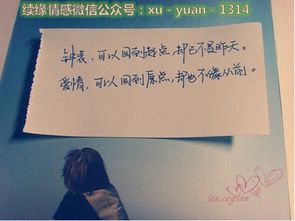 续缘情感微信公众号：xu - yuan - 1314
钟表，可以回到起点，却已不是昨天。
爱情，可以回到原点，却也不像从前。
leo.ceylon